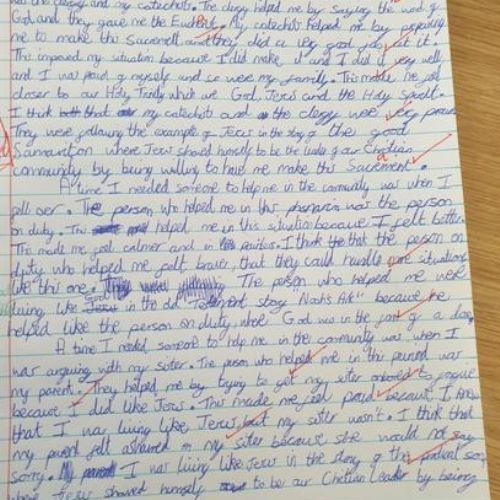 the clergy and my catechists. The clergy helped me by saying the word of
God and they gave me the Eucherist. My catechists helped me by preparing
me to make this Sacrement and they did a very good job at it.
This improved my situation because I did make it and I did it very well
and I was proud of myself and so were my family. This made me feel
closer to our Holy Trinity which are God, Jesus and the Holy Spirit.
I think that my catechists and the clergy were very proud.
They were following the example of Jesus in the story of the good
Samaritan where Jesus showed himself to be the leader of our Christian
community by being willing to have me make this Sacrement.
A time I needed someone to help me in the community was when I
fell over. The person who helped me in this was the person
on duty. This helped me in this situation because I felt better.
This made me feel calmer and in less . I think that the person on
duty who helped me felt brave, that they could handle a situation
like this one. The person who helped me were
living like God in the old Testement story Noah's Ark" because he
helped like the person on duty, where God was in the form of a
A time I needed someone to help me in the community was, when I
was arguing with my sister. The person who helped me in this period was
my parent. They helped me by trying to get my sister to forgive
because I did like Jesus. This made me feel proud because I knew
that I was living like Jesus but my sister wasn't. I think that
my parent felt ashamed in my sister because she would not say
sorry. I was living like Jesus in the story of the son,
where Jesus showed himself to be our Christian Leader by being